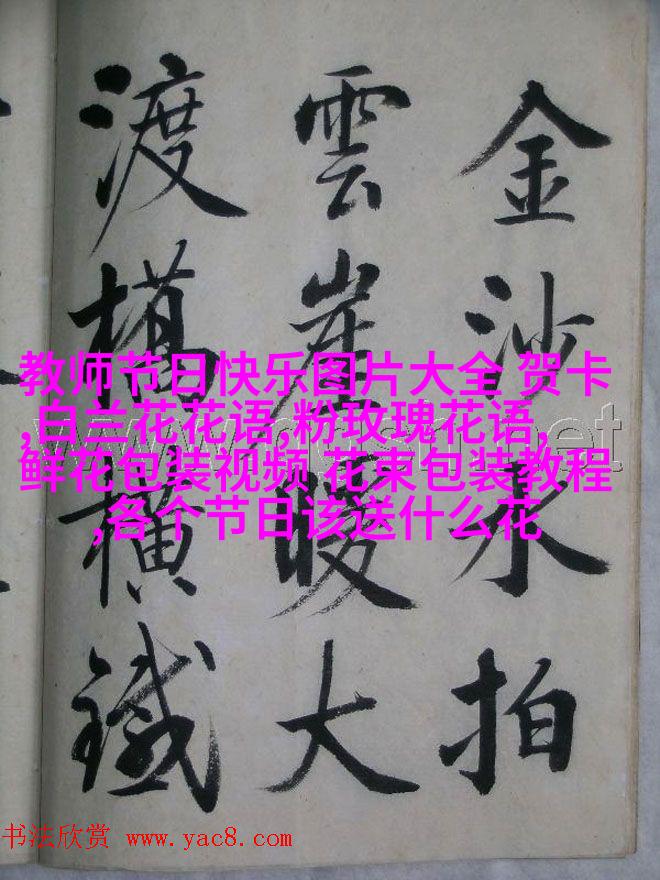 金沙水拍
雲崖暖大
渡橋橫鐵
教师节日快乐图片大全 贺卡
,白兰花花语,粉玫瑰花语,
鲜花包装视频 花束包装教程
,各个节日该送什么花
书法欣赏 www.yac8.com